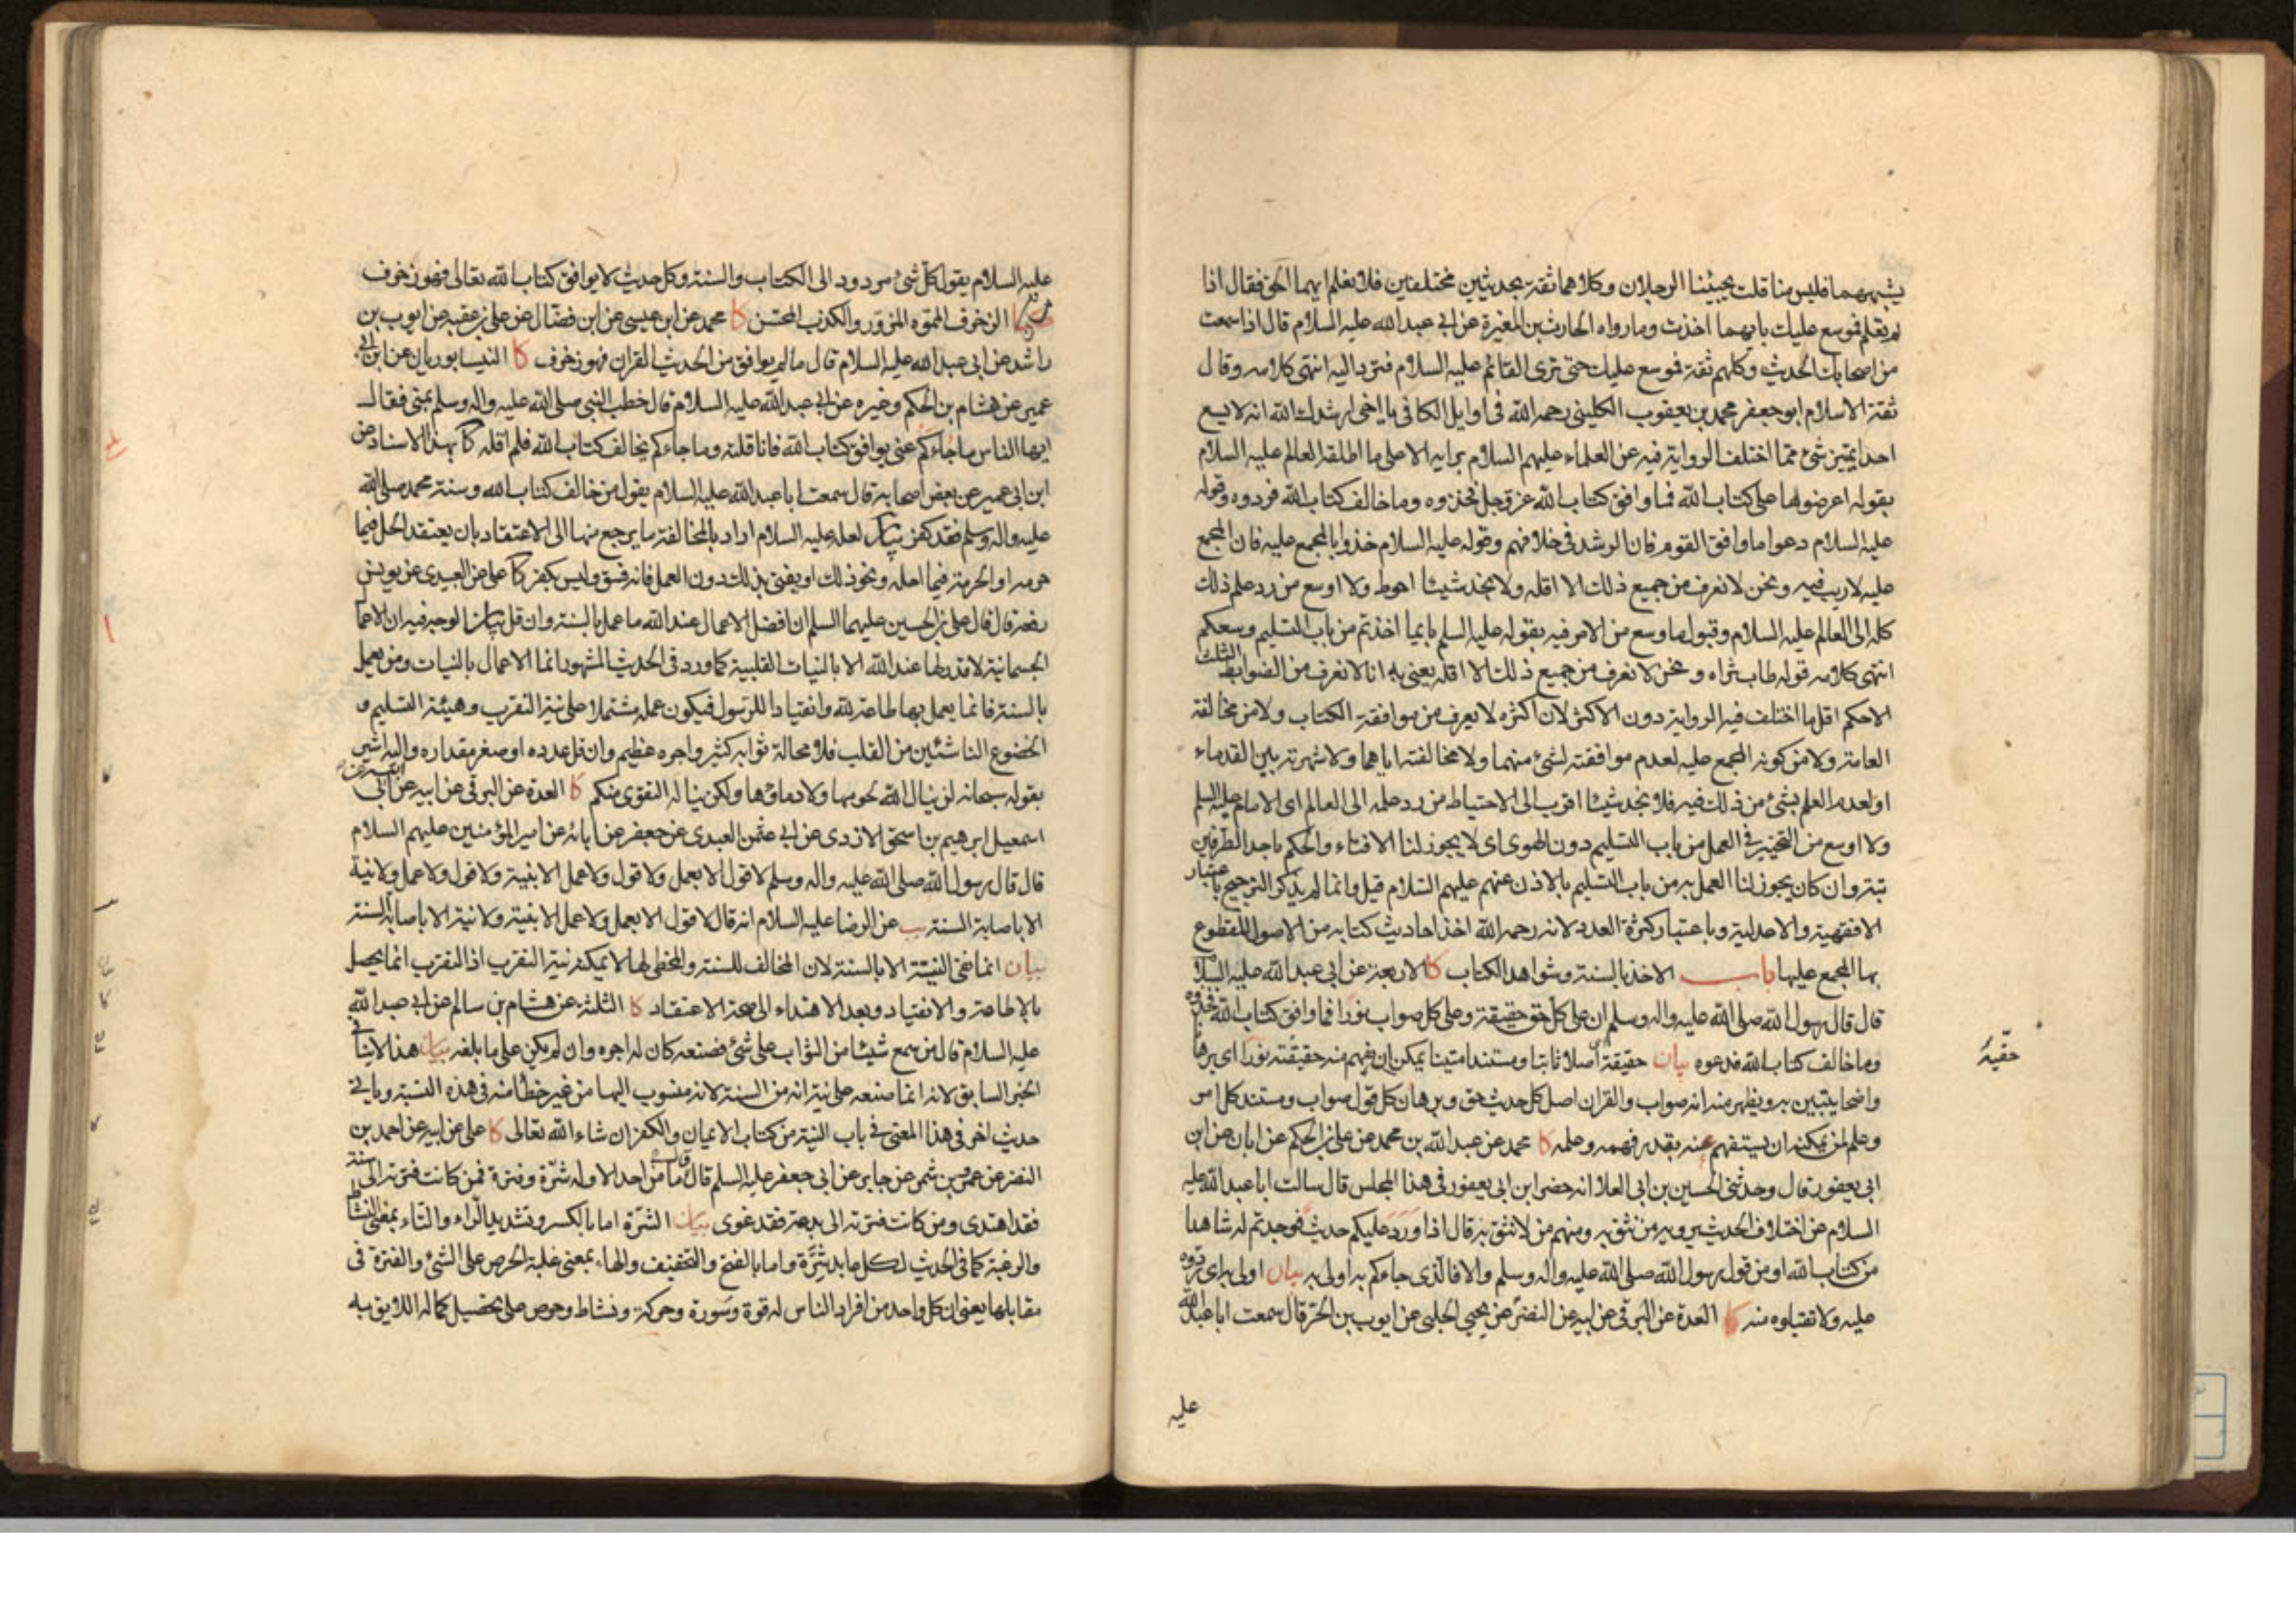 يشبههما فليس منا قلت يجيئنا الرجلان وكلاهما ثقة بحديثين مختلفين فلا نعلم ايهما الحق فقال اذا
لم تعلم فموسع عليك بايهما اخذت وما رواه الحارث بن المغيرة عن ابي عبد الله عليه السلام قال اذا سمعت
من اصحابك الحديث وكلهم ثقة فموسع عليك حتى ترى القائم عليه السلام فترد اليه انتهى كلامه وقال
ثقة الاسلام ابو جعفر محمد بن يعقوب الكليني رحمه الله في اوايل الكافي يا اخي ارشدك الله انه لا يسع
احدا تميز شئ مما اختلف الرواية فيه عن العلماء عليهم السلام برايه الا على ما اطلقه العالم عليه السلام
بقوله اعرضوها على كتاب الله فما وافق كتاب الله عز وجل فخذوه وما خالف كتاب الله فردوه وقوله
عليه السلام دعوا ما وافق القوم فان الرشد في خلافهم وقوله عليه السلام خذوا بالمجمع عليه فان المجمع
عليه لا ريب فيه ونحن لا نعرف من جميع ذلك الا اقله ولا نجد شيئا احوط ولا اوسع من رد علم ذلك
كله الى العالم عليه السلام وقبول ما وسع من الامر فيه بقوله عليه السلم بايما اخذتم من باب التسليم وسعكم
انتهى كلامه قوله طاب ثراه ونحن لا نعرف من جميع ذلك الا اقله يعني به انا لا نعرف من الضوابط الثلث
الا حكم اقل ما اختلف فيه الرواية دون الاكثر لان اكثره لا يعرف من موافقة الكتاب ولا من مخالفة
العامة ولا من كونه المجمع عليه لعدم موافقته لشئ منهما ولا مخالفته اياهما ولا شهرته بين القدماء
او لعدم العلم بشئ من ذلك فيه فلا نجد شيئا اقرب الى الاحتياط من رد علمه الى العالم اى الامام عليه السلم
ولا اوسع من التخيير في العمل من باب التسليم دون الهوى اى لا يجوز لنا الافتاء والحكم باحد الطرفين
بتة وان كان يجوز لنا العمل به من باب التسليم بالاذن عنهم عليهم السلام قيل وانما لم يذكر الترجيح باعتبار
الافقهية والاعدلية وباعتبار كثرة العدد لانه رحمه الله اخذ احاديث كتابه من الاصول المقطوع
بها المجمع عليها باب الاخذ بالسنة وشواهد الكتاب كا الاربعة عن ابي عبد الله عليه السلام
قال قال رسول الله صلى الله عليه واله وسلم ان على كل حق حقيقة وعلى كل صواب نورا فما وافق كتاب الله فخذوه
وما خالف كتاب الله فدعوه بيان حقيقة اصلا ثابتا ومستندا متينا يمكن ان يفهم منه حقيقته نورا اى برهانا
واضحا يتبين به ويظهر منه انه صواب والقران اصل كل حديث حق وبرهان كل قول صواب ومستند كل امر
وعلم لمن يمكنه ان يستفهم عنه بقدر فهمه وعلمه كا محمد عن عبد الله بن محمد عن علي بن الحكم عن ابان عن ابن
ابي يعفور قال وحدثني الحسين بن ابي العلا انه حضر ابن ابي يعفور في هذا المجلس قال سالت ابا عبد الله عليه
السلام عن اختلاف الحديث يرويه من نثق به ومنهم من لا نثق به قال اذا ورد عليكم حديث فوجدتم له شاهدا
من كتاب الله او من قول رسول الله صلى الله عليه واله وسلم والا فالذى جاءكم به اولى به بيان اولى به اى ردوه
عليه ولا تقبلوه منه كا العدة عن البرقي عن ابيه عن النضر عن يحيى الحلبي عن ايوب بن الحر قال سمعت ابا عبد الله
عليه
عليه السلام يقول كل شئ مردود الى الكتاب والسنة وكل حديث لا يوافق كتاب الله تعالى فهو زخرف
الزخرف المموه المزور والكذب المحسن كا محمد عن ابن عيسى عن ابن فضال عن علي بن عقبه عن ايوب بن
راشد عن ابي عبد الله عليه السلام قال ما لم يوافق من الحديث القران فهو زخرف كا النيسابوريان عن ابن ابي
عمير عن هشام بن الحكم وغيره عن ابي عبد الله عليه السلام قال خطب النبي صلى الله عليه واله وسلم بمنى فقال
ايها الناس ما جاءكم عني يوافق كتاب الله فانا قلته وما جاءكم يخالف كتاب الله فلم اقله كا بهذا الاسناد عن
ابن ابي عمير عن بعض اصحابه قال سمعت ابا عبد الله عليه السلام يقول من خالف كتاب الله وسنة محمد صلى الله
عليه واله وسلم فقد كفر بيان لعله عليه السلام اراد بالمخالفة ما يرجع منها الى الاعتقاد بان يعتقد الحل فيما
حرمه او الحرمة فيما احله ونحو ذلك او يفتي بذلك دون العمل فانه فسق وليس بكفر كا علي عن العبيدى عن يونس
رفعه قال قال علي بن الحسين عليهما السلم ان افضل الاعمال عند الله ما عمل بالسنة وان قل بيان الوجه فيه ان الاعمال
الجسمانية لا قدر لها عند الله الا بالنيات القلبية كما ورد في الحديث المشهور انما الاعمال بالنيات ومن يعمل
بالسنة فانما يعمل بها طاعة لله وانقيادا للرسول فيكون عمله مشتملا على نية التقرب وهيئة التسليم و
الخضوع الناشئين من القلب فلا محالة ثوابه كثير واجره عظيم وان قل عدده او صغر مقداره واليه اشير
بقوله سبحانه لن ينال الله لحومها ولا دماؤها ولكن يناله التقوى منكم كا العدة عن البرقي عن ابيه عن ابي
اسمعيل ابرهيم بن اسحق الازدى عن ابي عثمن العبدى عن جعفر عن ابائه عن امير المؤمنين عليهم السلام
قال قال رسول الله صلى الله عليه واله وسلم لا قول الا بعمل ولا قول ولا عمل الا بنية ولا قول ولا عمل ولا نية
الا باصابة السنة يب عن الرضا عليه السلام انه قال لا قول الا بعمل ولا عمل الا بنية ولا نية الا باصابة السنة
بيان انما نفى النية الا بالسنة لان المخالف للسنة والمخطي لها لا يمكنه نية التقرب اذ التقرب انما يحصل
بالاطاعة والانقياد وبعد الاهتداء الى صحة الاعتقاد كا الثلثة عن هشام بن سالم عن ابي عبد الله
عليه السلام قال من سمع شيئا من الثواب على شئ فصنعه كان له اجره وان لم يكن على ما بلغه بيان هذا لا ينافي
الخبر السابق لانه انما صنعه على نية انه من السنة لانه منسوب اليها من غير خطأ منه في هذه النسبة وياتي
حديث اخر في هذا المعنى في باب النية من كتاب الايمان والكفر ان شاء الله تعالى كا علي عن ابيه عن احمد بن
النضر عن عمرو بن شمر عن جابر عن ابي جعفر عليه السلم قال ما من احد الا وله شرة وفترة فمن كانت فترته الى سنة
فقد اهتدى ومن كانت فترته الى بدعة فقد غوى بيان الشرة اما بالكسر وتشديد الراء والتاء بمعنى النشاط
والرغبة كما في الحديث لكل عابد شرة واما بالفتح والتخفيف والهاء بمعنى غلبة الحرص على الشئ والفترة في
مقابلها يعني ان كل واحد من افراد الناس له قوة وسورة وحركة ونشاط وحرص على تحصيل كماله اللايق به